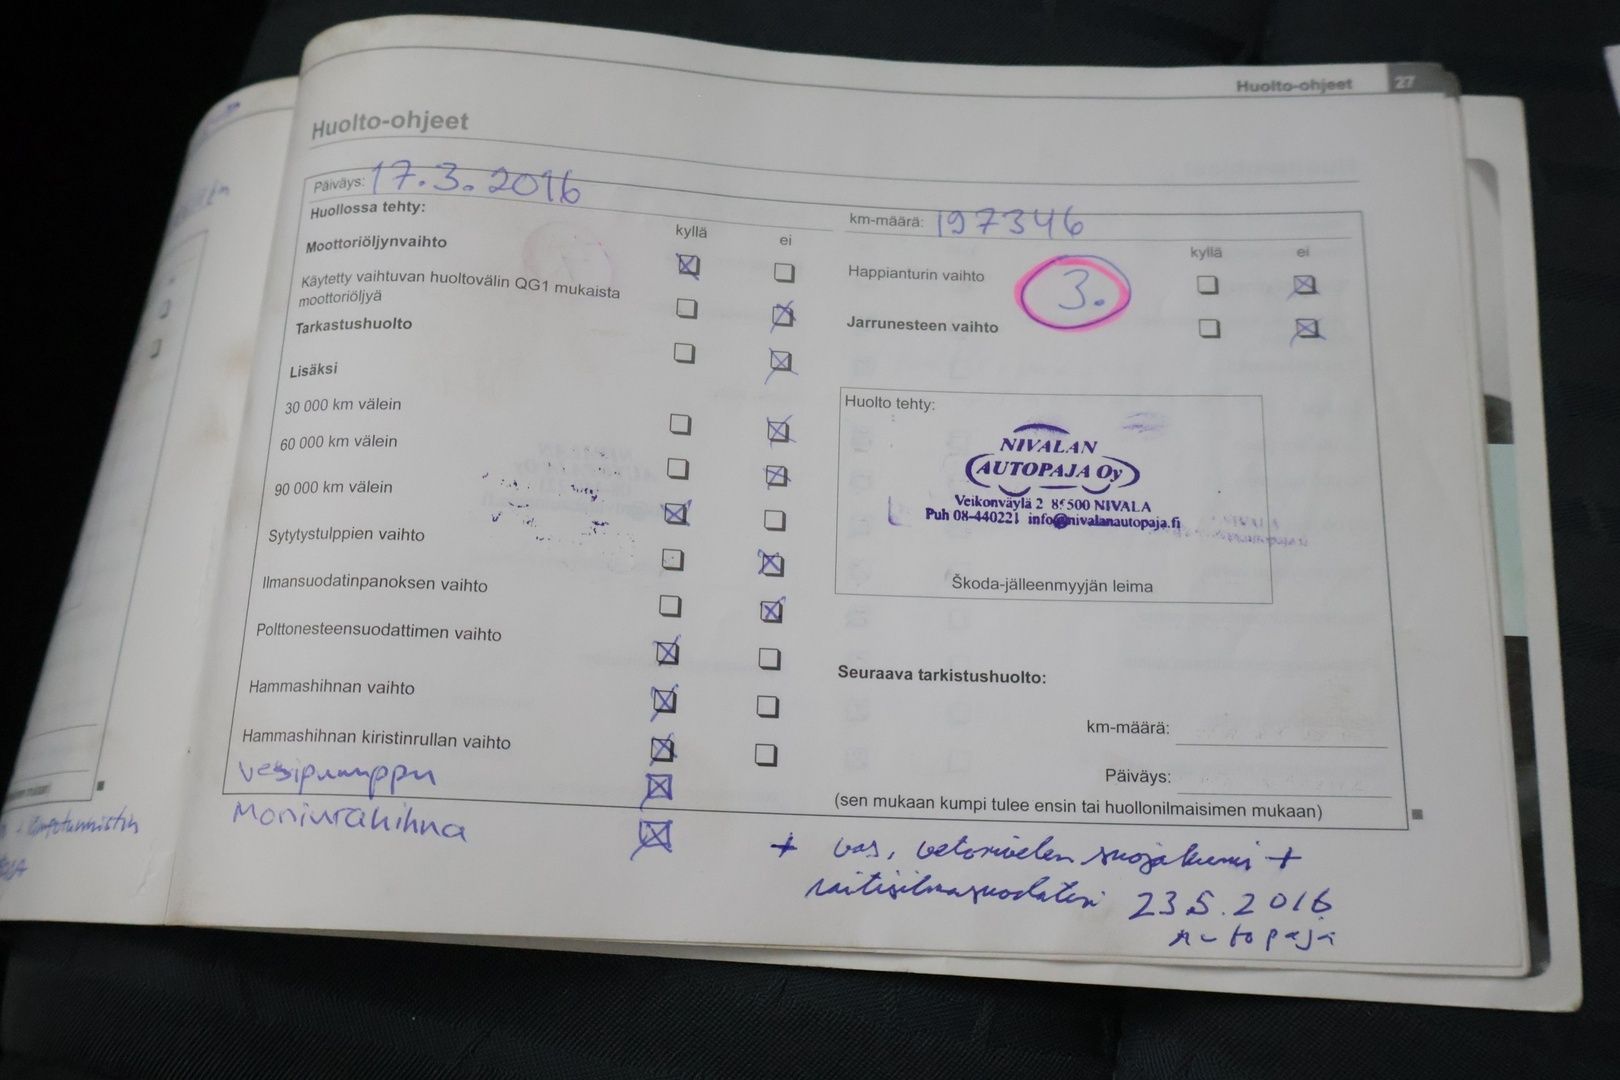 Huolto-ohjeet 27
Huolto-ohjeet
Päiväys: 17.3.2016
km-määrä: 197346
Huollossa tehty:
kyllä ei
kyllä ei
Moottoriöljynvaihto
Käytetty vaihtuvan huoltovälin QG1 mukaista
moottoriöljyä
Tarkastushuolto
Lisäksi
30 000 km välein
60 000 km välein
90 000 km välein
Sytytystulppien vaihto
Ilmansuodatinpanoksen vaihto
Polttonesteensuodattimen vaihto
Hammashihnan vaihto
Hammashihnan kiristinrullan vaihto
Vesipumppu
Moniurahihna
Happianturin vaihto
3.
Jarrunesteen vaihto
Huolto tehty:
NIVALAN
AUTOPAJA Oy
Veikonväylä 2 85500 NIVALA
Puh 08-440221 info@nivalanautopaja.fi
Škoda-jälleenmyyjän leima
Seuraava tarkistushuolto:
km-määrä:
Päiväys:
(sen mukaan kumpi tulee ensin tai huollonilmaisimen mukaan)
+ vas, vetonivelen suojakumi +
raitisilmasuodatin 23.5.2016
Autopaja